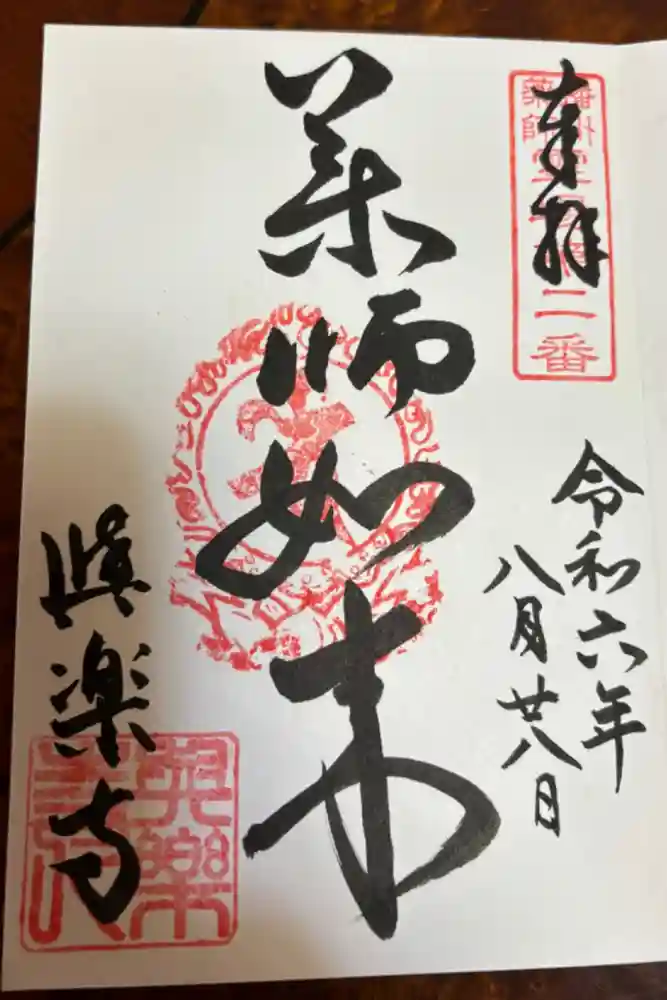 奉拝
播州
薬師
霊場第二番
令和六年
八月廿八日
薬師如来
楽寺